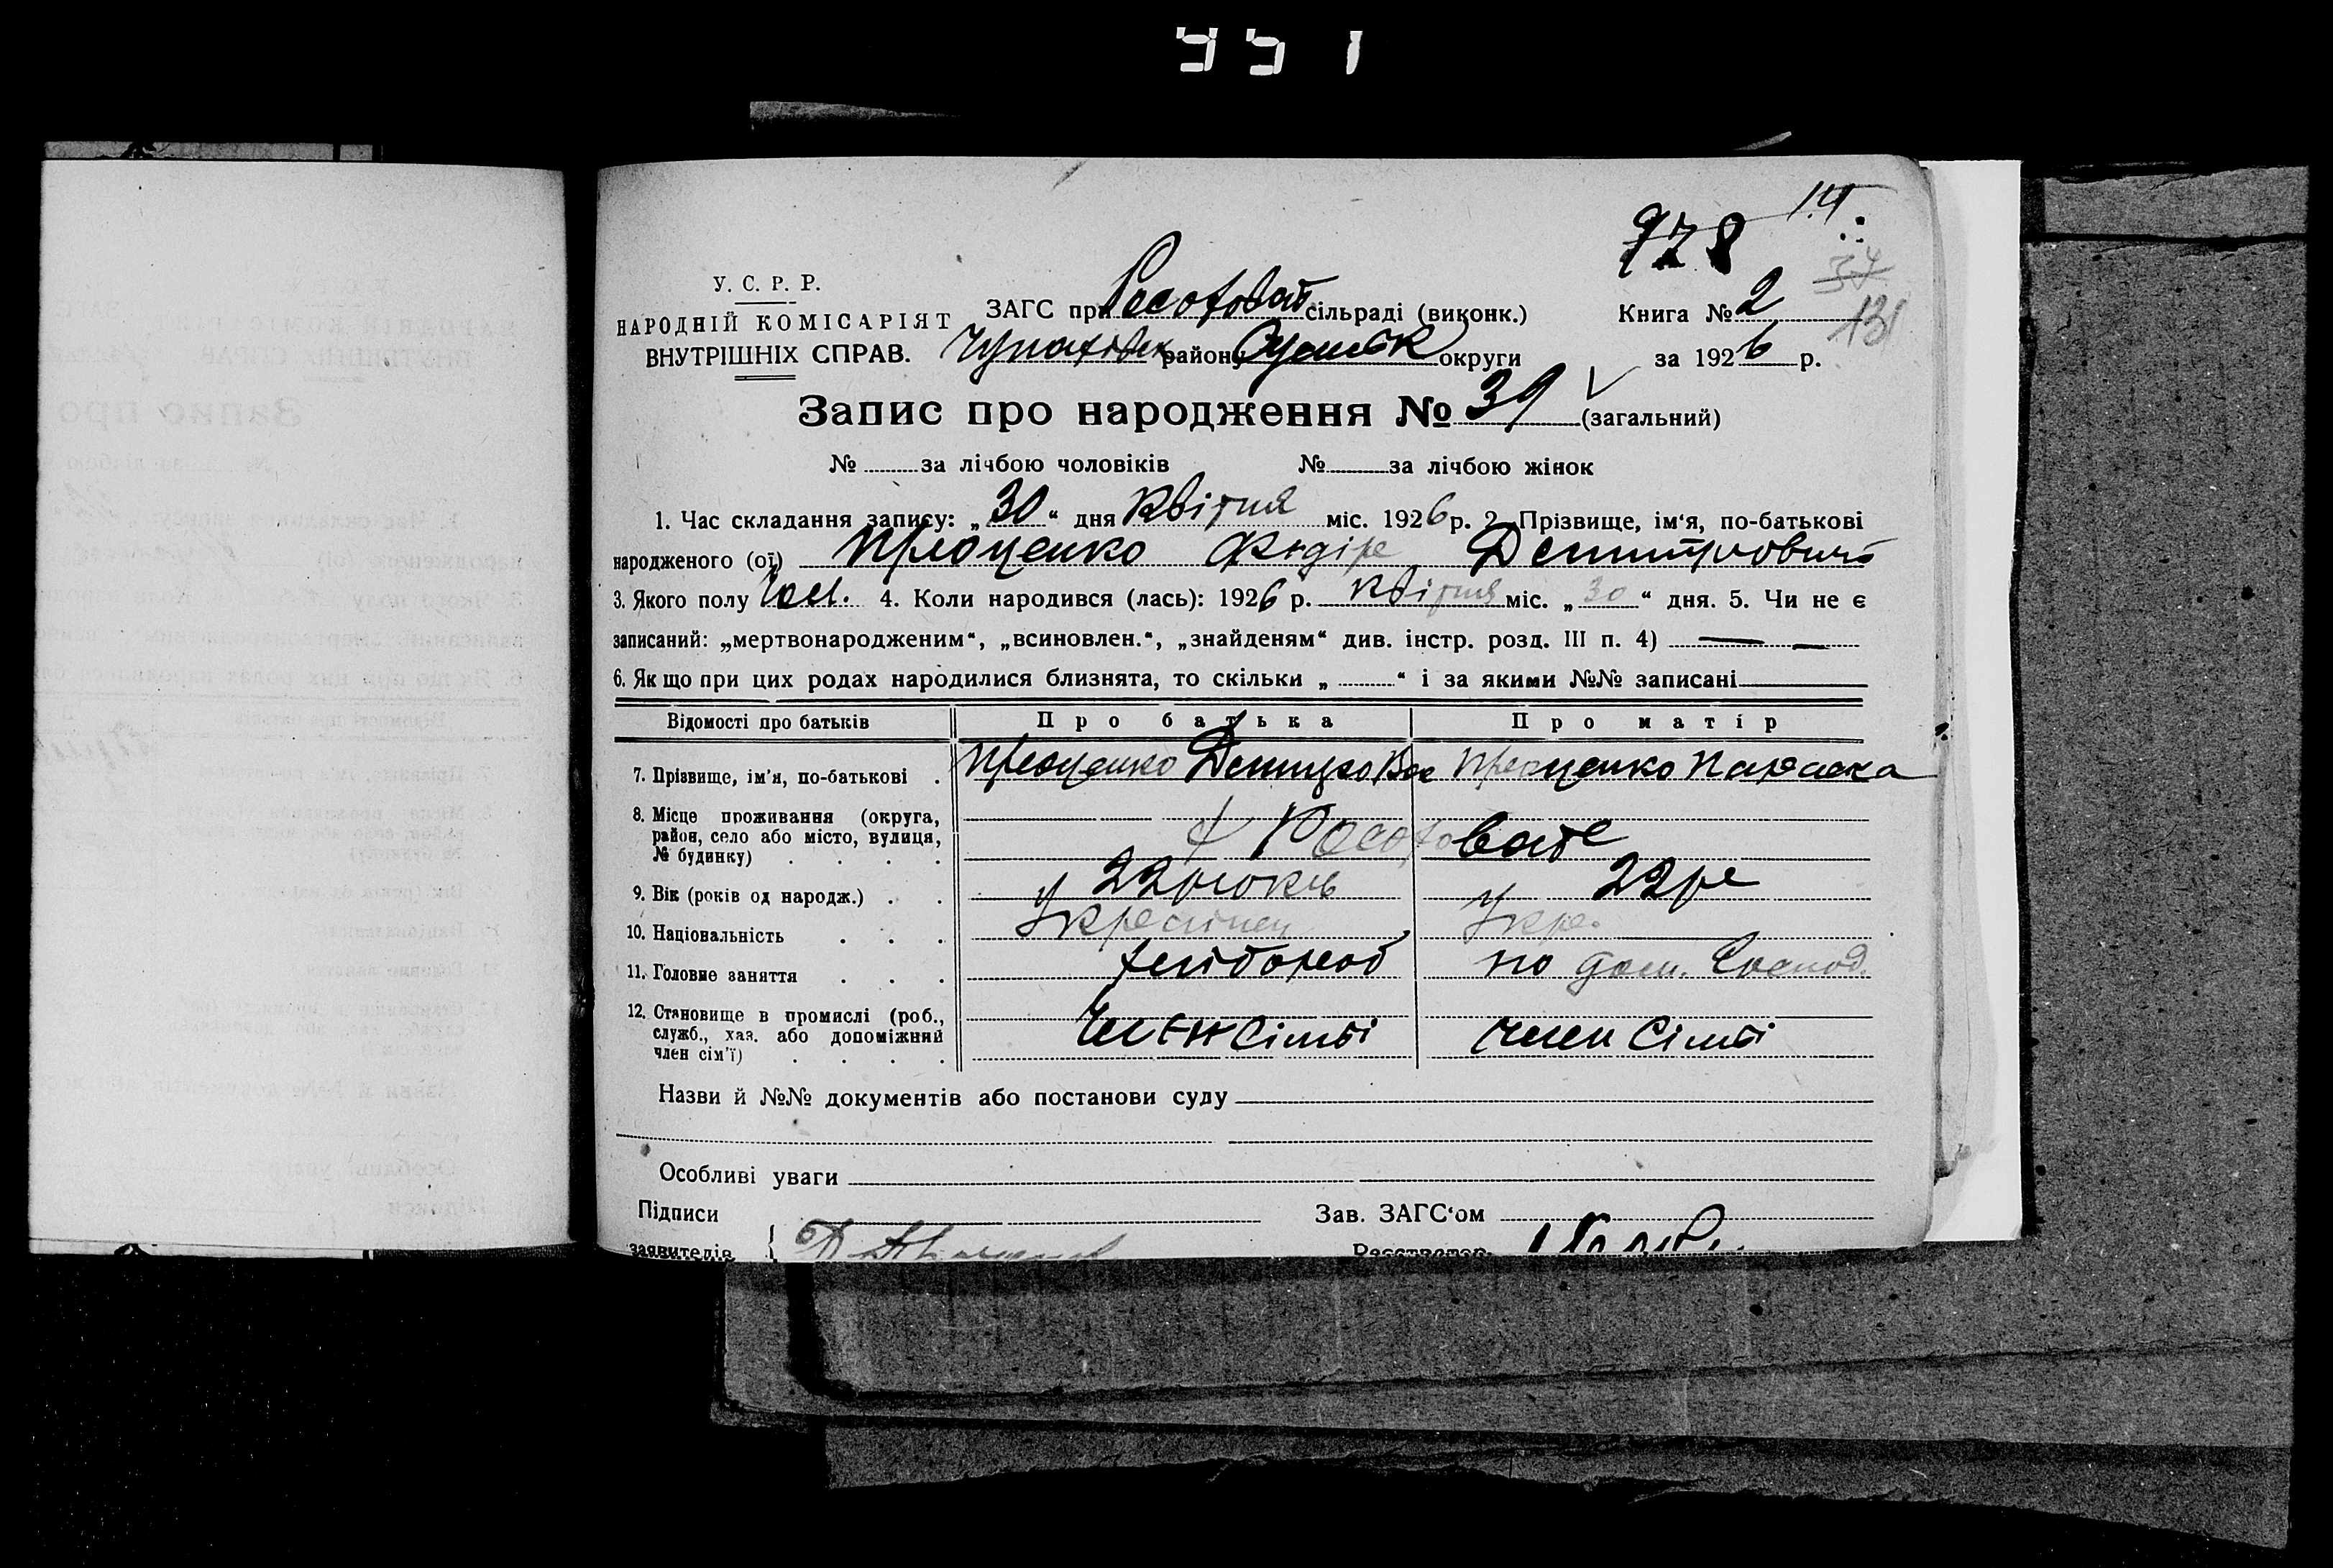 951
14
978
34
131
У. С. Р. Р.
НАРОДНІЙ КОМІСАРІЯТ
ВНУТРІШНІХ СПРАВ.
ЗАГС при Росоховат сільраді (виконк.)
Чупахівск району Сумськ округи
Книга № 2
за 1926 р.
Запис про народження № 39 (загальний)
№ за лічбою чоловіків № за лічбою жінок
1. Час складання запису: „30“ дня Квітня міс. 1926 р. 2. Прізвище, ім‘я, по-батькові
народженого (ої) Проценко Федір Дмитрович
3. Якого полу Чол. 4. Коли народився (лась): 1926 р. Квітня міс. „30“ дня. 5. Чи не є
записаний: „мертвонародженим“, „всиновлен.“, „знайденям“ див. інстр. розд. III п. 4)
6. Якщо при цих родах народилися близнята, то скільки „ “ і за якими №№ записані
Відомості про батьків Про батька Про матір
7. Прізвище, ім'я, по-батькові Проценко Дмитро Проценко Параска
8. Місце проживання (округа,
район, село або місто, вулиця,
№ будинку) Росоховате
9. Вік (років од народж.) 22 років 22 р
10. Національність Українец Укр.
11. Головне заняття хлібороб по дом. Господ.
12. Становище в промислі (роб.,
служб., хаз. або допоміжний
член сім'ї) Член Сімьї член Сімьї
Назви й №№ документів або постанови суду
Особливі уваги
Підписи Зав. ЗАГС‘ом
заявителів